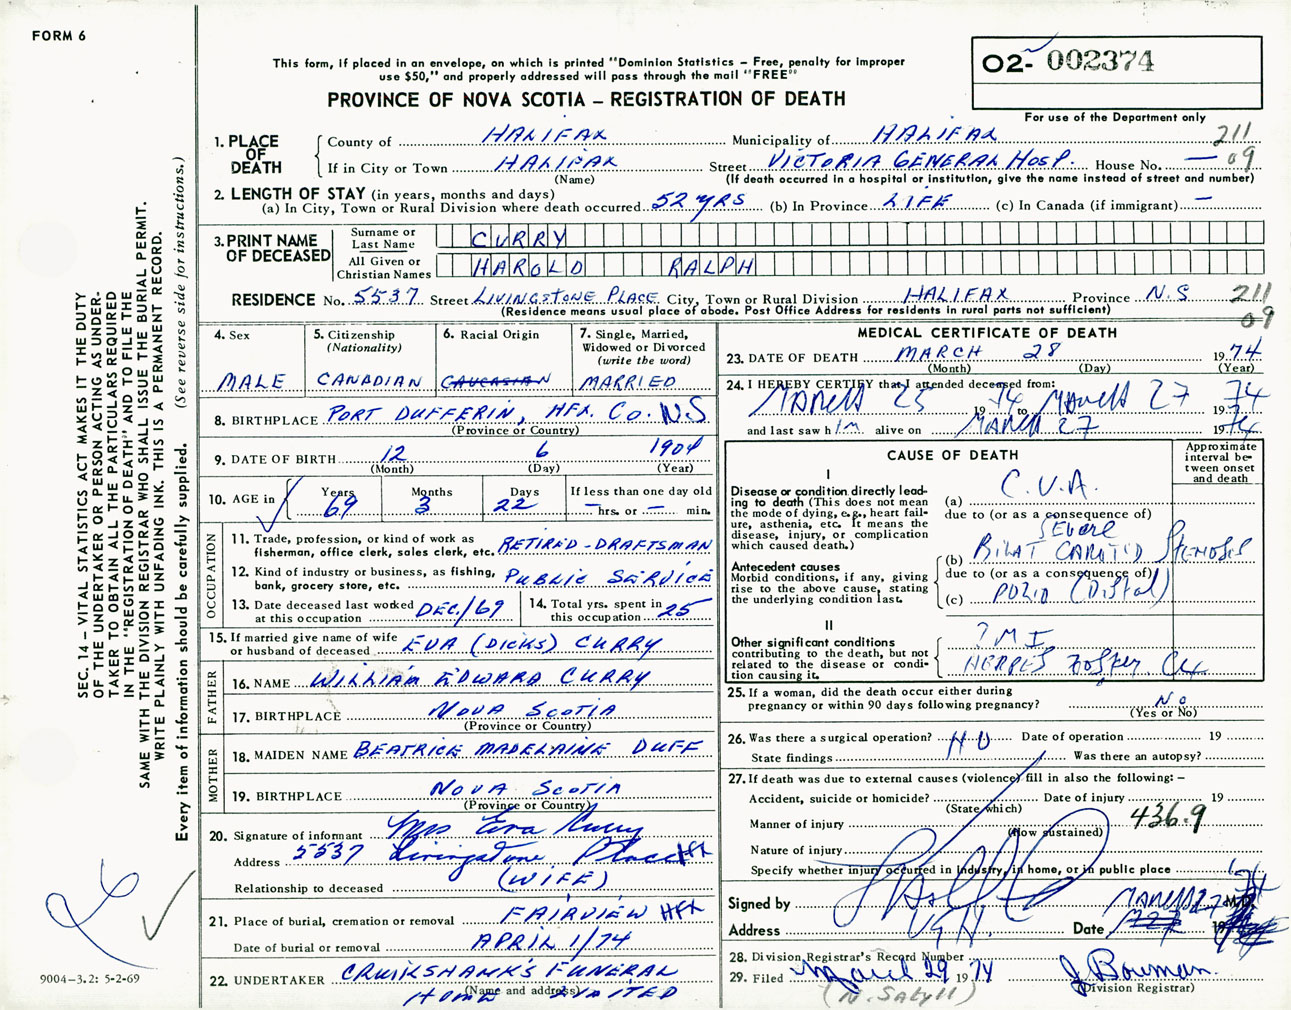 FORM 6
This form, if placed in an envelope, on which is printed "Dominion Statistics – Free, penalty for improper
use $50," and properly addressed will pass through the mail "FREE"
PROVINCE OF NOVA SCOTIA – REGISTRATION OF DEATH
02- 002374
For use of the Department only
1. PLACE OF DEATH
County of HALIFAX Municipality of HALIFAX 211
If in City or Town HALIFAX Street VICTORIA GENERAL HOSP. House No. — 09
(Name) (If death occurred in a hospital or institution, give the name instead of street and number)
2. LENGTH OF STAY (in years, months and days)
(a) In City, Town or Rural Division where death occurred 52 YRS (b) In Province LIFE (c) In Canada (if immigrant) —
3. PRINT NAME OF DECEASED
Surname or Last Name CURRY
All Given or Christian Names HAROLD RALPH
RESIDENCE No. 5537 Street LIVINGSTONE PLACE City, Town or Rural Division HALIFAX Province N.S 211
(Residence means usual place of abode. Post Office Address for residents in rural parts not sufficient) 09
4. Sex
MALE
5. Citizenship
(Nationality)
CANADIAN
6. Racial Origin
CAUCASIAN
7. Single, Married,
Widowed or Divorced
(write the word)
MARRIED
8. BIRTHPLACE PORT DUFFERIN, HFX. CO. N.S
(Province or Country)
9. DATE OF BIRTH 12 6 1904
(Month) (Day) (Year)
10. AGE in Years 69 Months 3 Days 22 If less than one day old
— hrs. or — min.
OCCUPATION
11. Trade, profession, or kind of work as
fisherman, office clerk, sales clerk, etc. RETIRED-DRAFTSMAN
12. Kind of industry or business, as fishing,
bank, grocery store, etc. PUBLIC SERVICE
13. Date deceased last worked
at this occupation DEC./69
14. Total yrs. spent in
this occupation 25
15. If married give name of wife
or husband of deceased EVA (DICKS) CURRY
FATHER
16. NAME WILLIAM EDWARD CURRY
17. BIRTHPLACE NOVA SCOTIA
(Province or Country)
MOTHER
18. MAIDEN NAME BEATRICE MADELAINE DUFF
19. BIRTHPLACE NOVA SCOTIA
(Province or Country)
20. Signature of informant Mrs Eva Curry
Address 5537 Livingstone Place HFX
Relationship to deceased (WIFE)
21. Place of burial, cremation or removal FAIRVIEW HFX
Date of burial or removal APRIL 1/74
22. UNDERTAKER CRUIKSHANK'S FUNERAL
(Name and address) HOME LIMITED
MEDICAL CERTIFICATE OF DEATH
23. DATE OF DEATH MARCH 28 1974
(Month) (Day) (Year)
24. I HEREBY CERTIFY that I attended deceased from:
March 25 1974 to March 27 1974
and last saw him alive on March 27 1974
CAUSE OF DEATH
Approximate
interval be-
tween onset
and death
I
Disease or condition directly lead-
ing to death (This does not mean
the mode of dying, e.g., heart fail-
ure, asthenia, etc. It means the
disease, injury, or complication
which caused death.)
Antecedent causes
Morbid conditions, if any, giving
rise to the above cause, stating
the underlying condition last.
(a) C.V.A.
due to (or as a consequence of)
SEVERE
(b) BILAT CAROTID STENOSIS
due to (or as a consequence of)
(c) (Distal)
II
Other significant conditions
contributing to the death, but not
related to the disease or condi-
tion causing it.
? M I
HERPES ZOSTER
25. If a woman, did the death occur either during
pregnancy or within 90 days following pregnancy? No
(Yes or No)
26. Was there a surgical operation? NO Date of operation 19
State findings Was there an autopsy?
27. If death was due to external causes (violence) fill in also the following: –
Accident, suicide or homicide? Date of injury 19
(State which)
Manner of injury 436.9
(How sustained)
Nature of injury
Specify whether injury occurred in Industry, in home, or in public place
Signed by M.D.
Address V.G.H. Date March 27 19
28. Division Registrar's Record Number
29. Filed March 29 1974 J Bowman.
(Division Registrar)
SEC. 14 – VITAL STATISTICS ACT MAKES IT THE DUTY
OF THE UNDERTAKER OR PERSON ACTING AS UNDER-
TAKER TO OBTAIN ALL THE PARTICULARS REQUIRED
IN THE "REGISTRATION OF DEATH" AND TO FILE THE
SAME WITH THE DIVISION REGISTRAR WHO SHALL ISSUE THE BURIAL PERMIT.
WRITE PLAINLY WITH UNFADING INK. THIS IS A PERMANENT RECORD.
Every item of information should be carefully supplied. (See reverse side for instructions.)
9004-3.2: 5-2-69